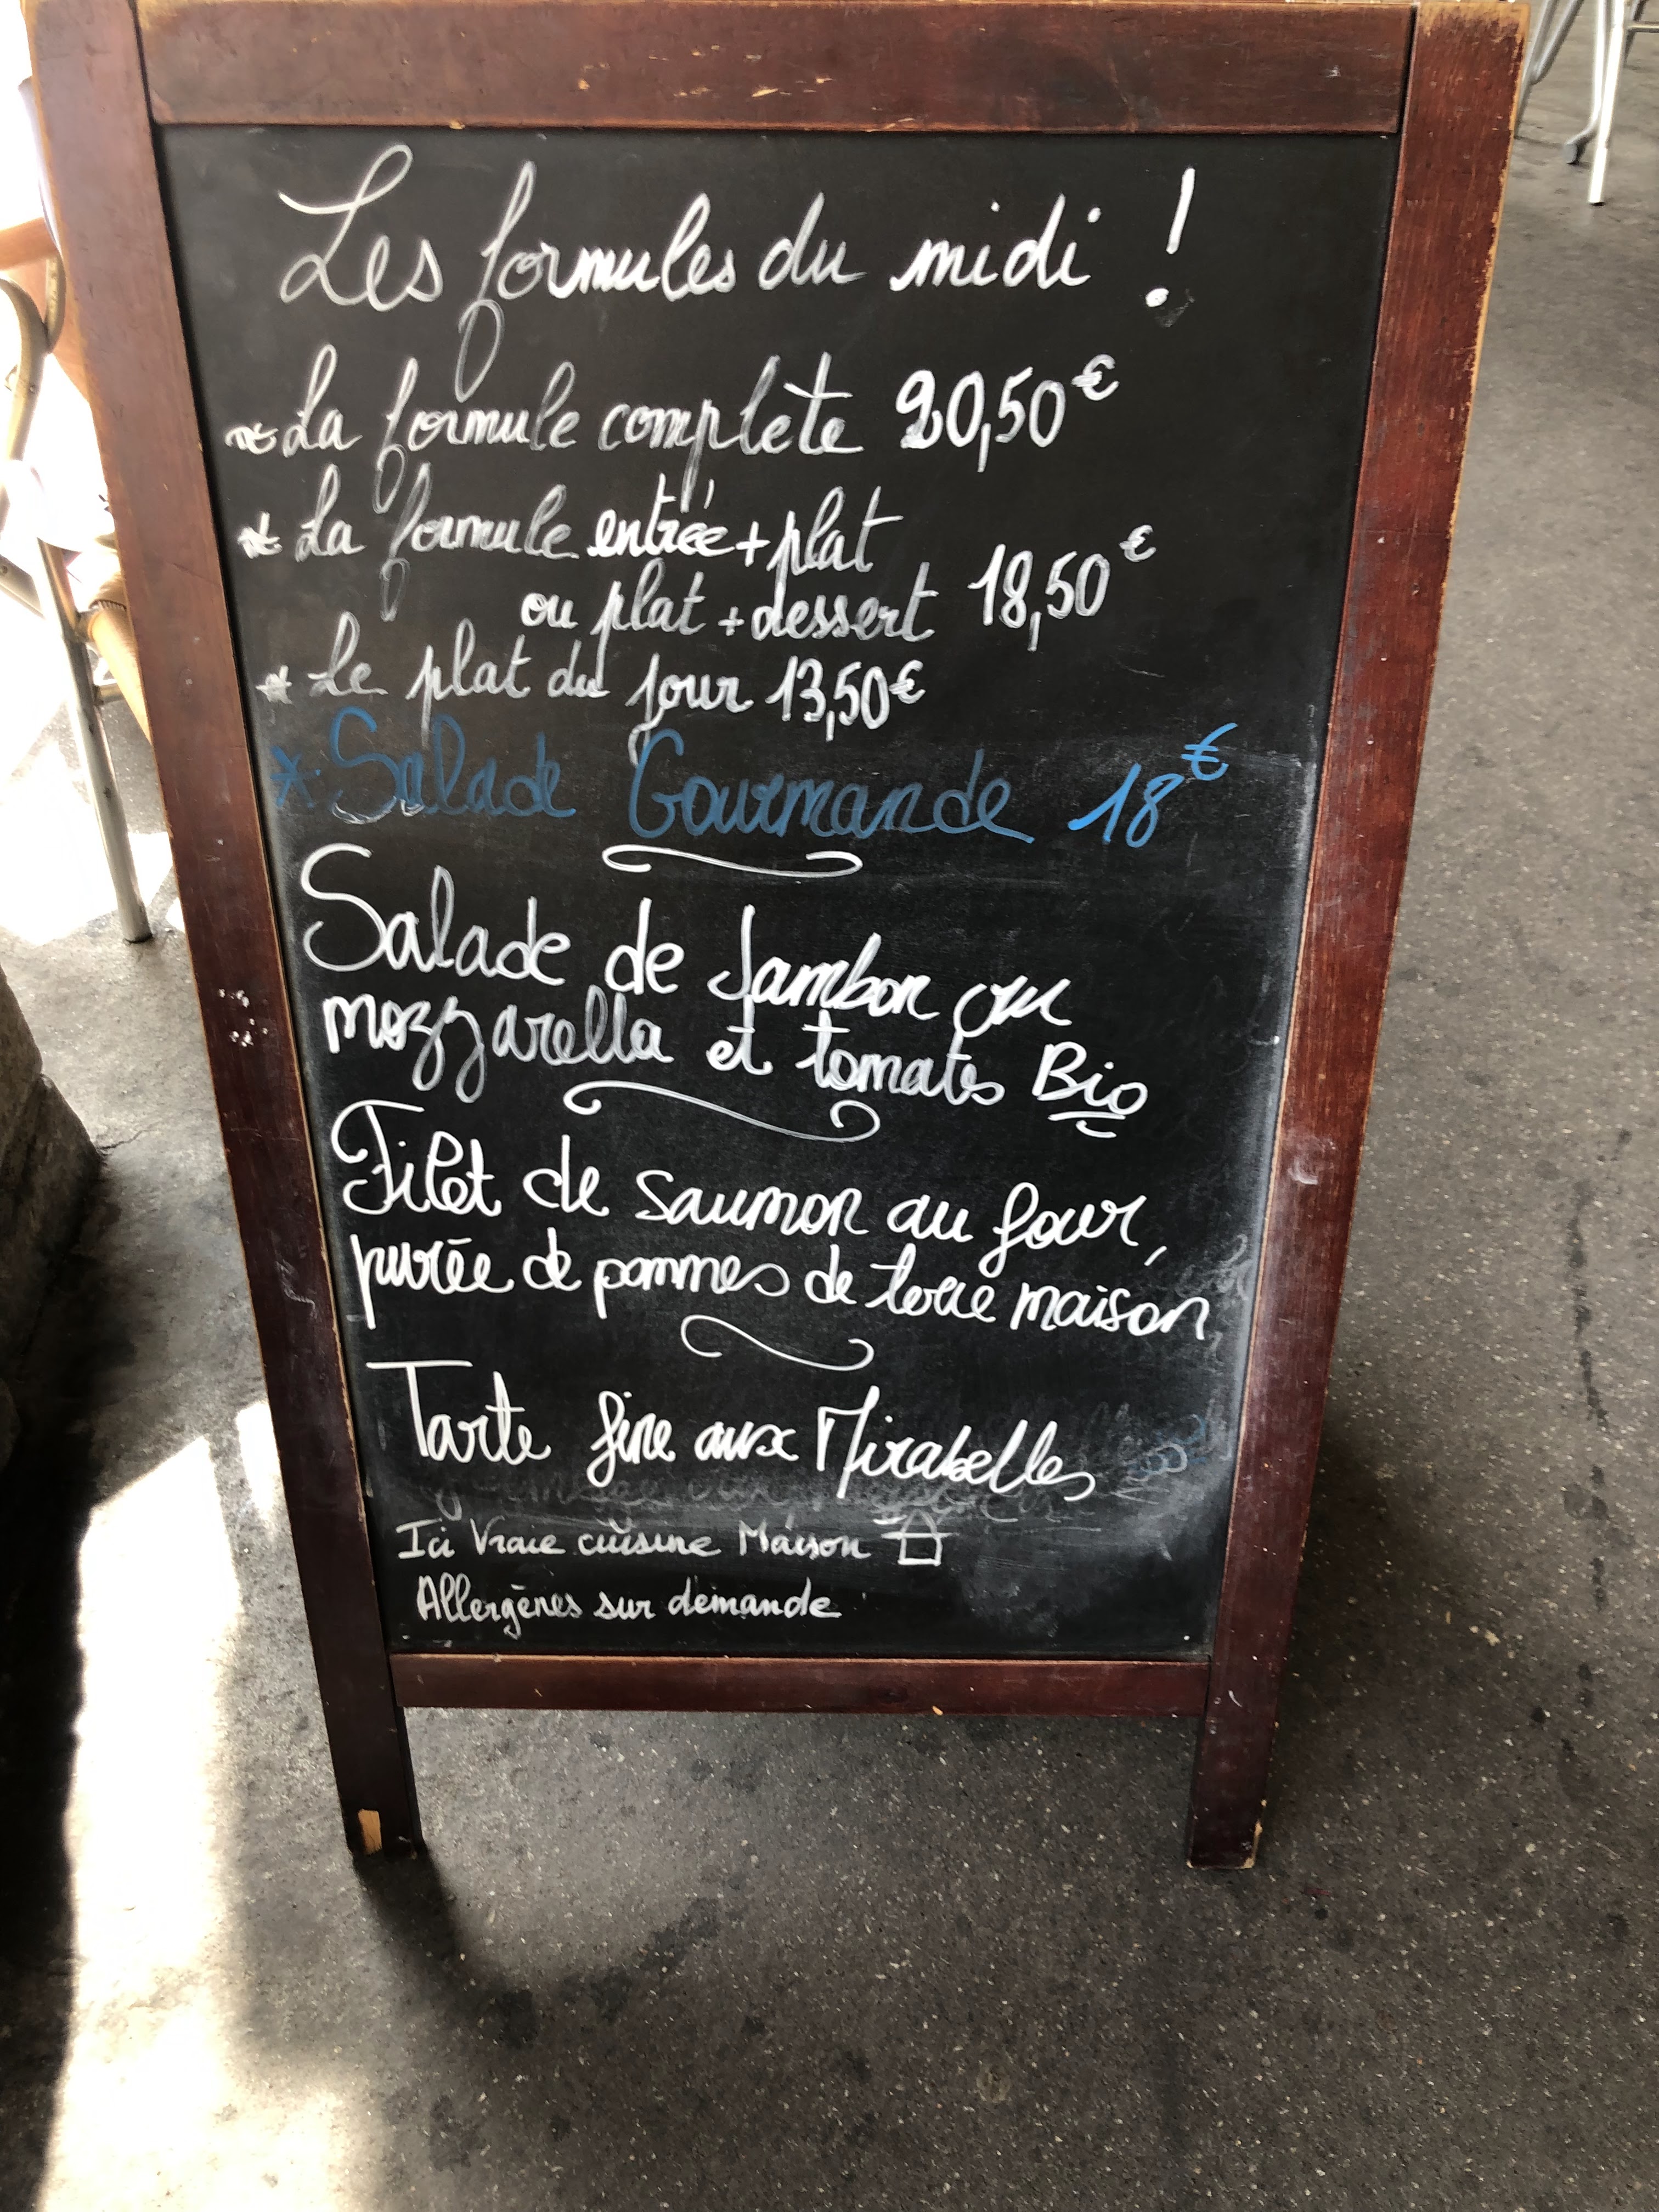 Les formules du midi !
* La formule complète 20,50€
* La formule entrée + plat
ou plat + dessert 18,50€
* Le plat du jour 13,50€
* Salade Gourmande 18€
Salade de Jambon ou
mozzarella et tomates Bio
Filet de saumon au four,
purée de pommes de terre maison
Tarte fine aux Mirabelles
Ici Vraie cuisine Maison
Allergènes sur demande